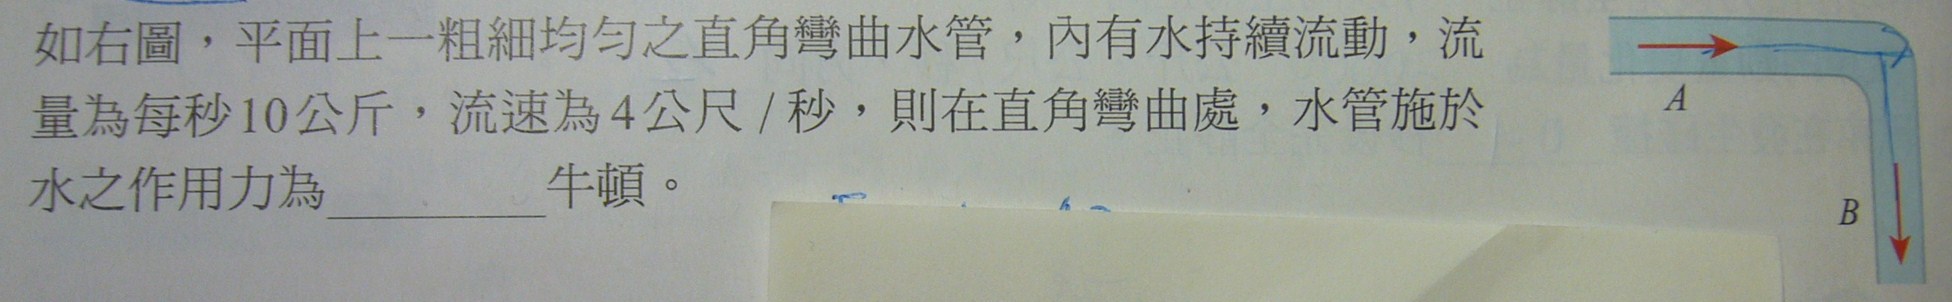 如右圖，平面上一粗細均勻之直角彎曲水管，內有水持續流動，流
量為每秒10公斤，流速為4公尺/秒，則在直角彎曲處，水管施於
水之作用力為________牛頓。
A
B